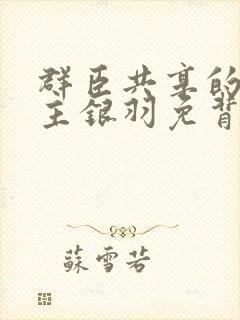 群臣共享的
主银羽免背
蘇雪若